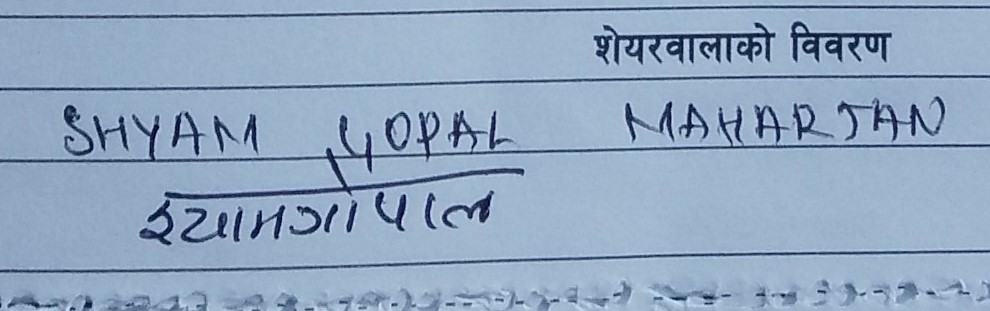 शेयरवालाको विवरण
SHYAM GOPAL MAHARJAN
श्यामगोपाल